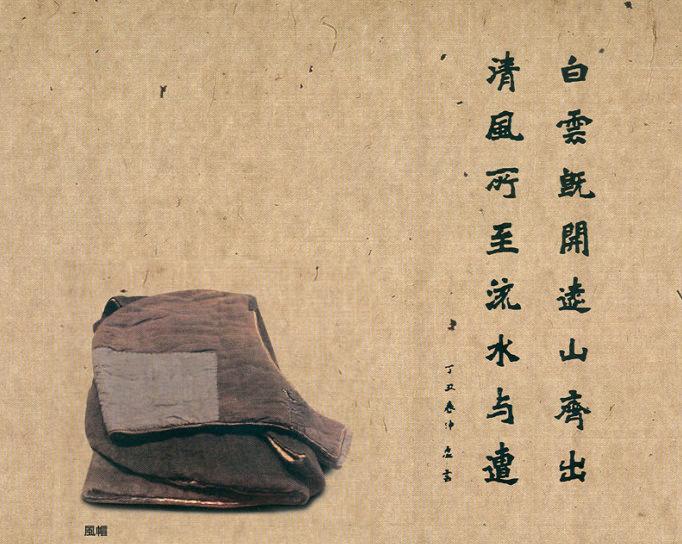 白雲既開遠山齊出
清風所至流水与遭
丁丑春沖盦書
風帽